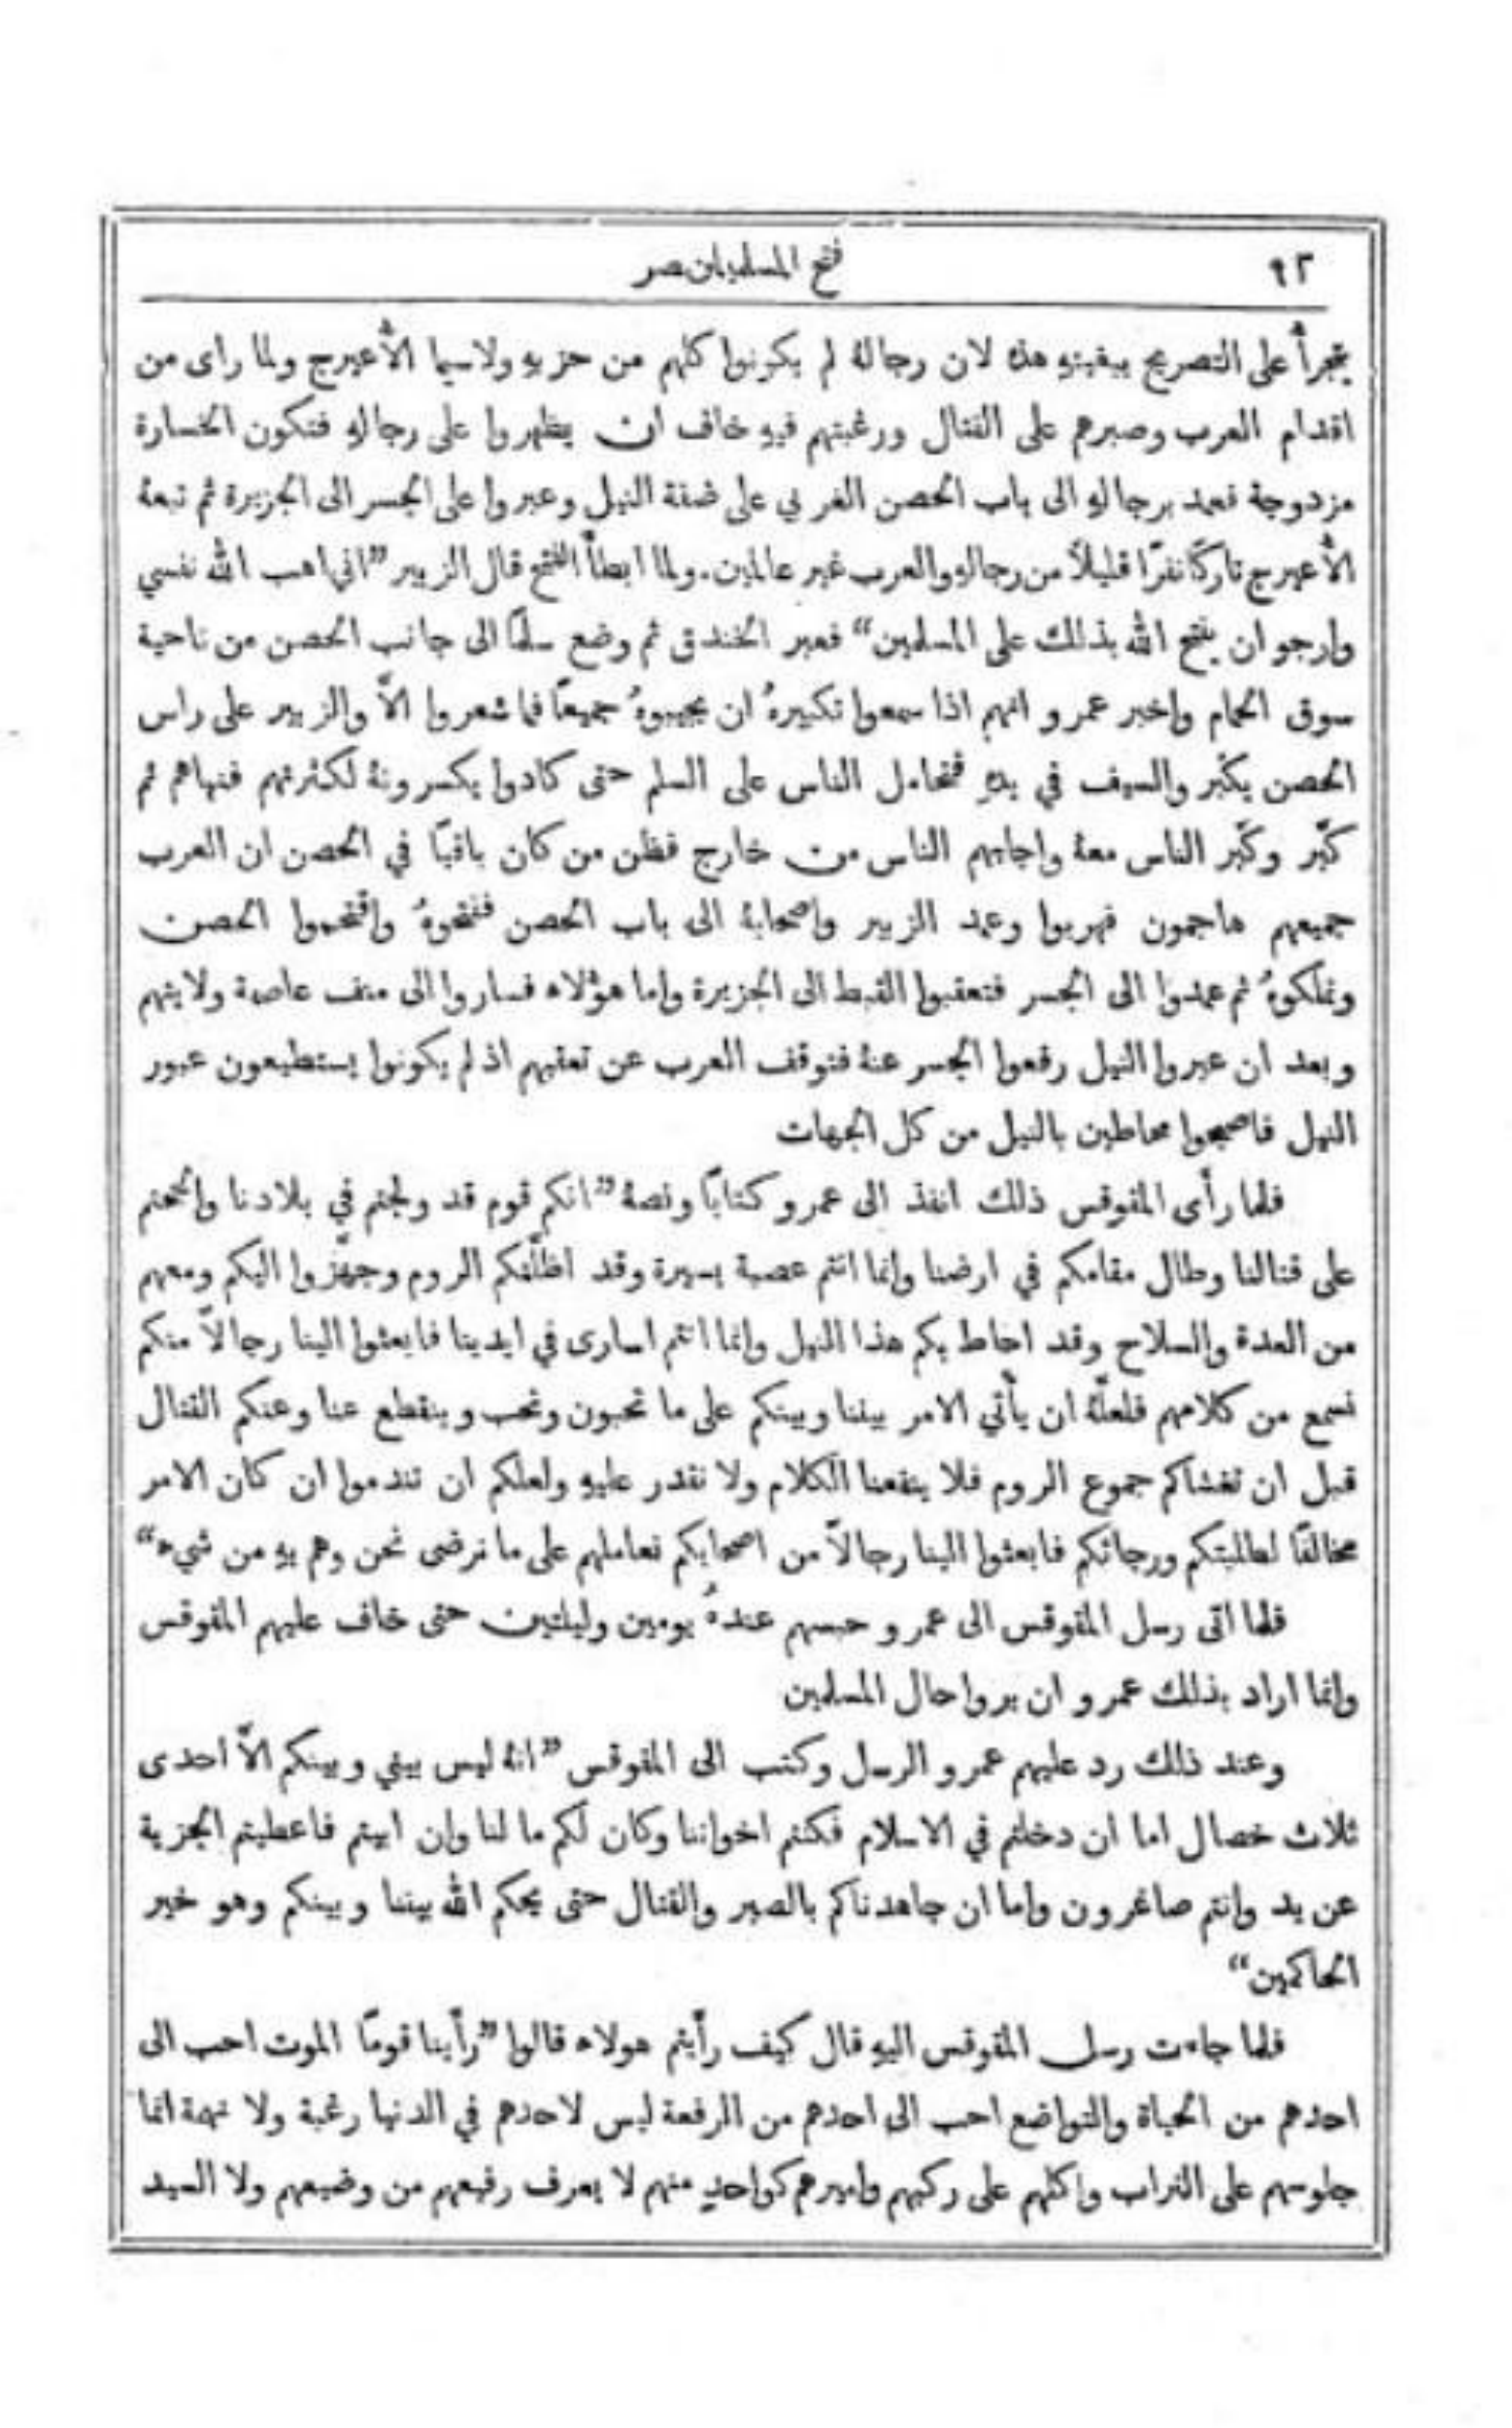 ٩٢
فتح المسلمين مصر
يتجرأ على التصريح ببغيته هذه لان رجالهُ لم يكونوا كلهم من حزبه ولاسيما الأعيرج ولما راى من
اقدام العرب وصبرهم على القتال ورغبتهم فيه خاف ان يظهروا على رجاله فتكون الخسارة
مزدوجة فعمد برجاله الى باب الحصن الغربي على ضفة النيل وعبروا على الجسر الى الجزيرة ثم تبعهُ
الأعيرج تاركًا نفرًا قليلاً من رجاله والعرب غير عالمين. ولما ابطأ الفتح قال الزبير ”اني اهب الله نفسي
وارجو ان يفتح الله بذلك على المسلمين“ فعبر الخندق ثم وضع سلمًا الى جانب الحصن من ناحية
سوق الحمام واخبر عمرو انهم اذا سمعوا تكبيرهُ ان يجيبوهُ جميعًا فما شعروا الاَّ والزبير على راس
الحصن يكبّر والسيف في يده فتحامل الناس على السلم حتى كادوا يكسرونهُ لكثرتهم فنهاهم ثم
كبّر وكبّر الناس معهُ واجابهم الناس من خارج فظن من كان باقيًا في الحصن ان العرب
جميعهم هاجمون فهربوا وعمد الزبير واصحابهُ الى باب الحصن ففتحوهُ واقتحموا الحصن
وتملكوهُ ثم عمدوا الى الجسر فتعقبوا القبط الى الجزيرة واما هؤلاء فساروا الى منف عاصمة ولايتهم
وبعد ان عبروا النيل رفعوا الجسر عنهُ فتوقف العرب عن تعقبهم اذ لم يكونوا يستطيعون عبور
النيل فاصبحوا محاطين بالنيل من كل الجهات
فلما رأى المقوقس ذلك انفذ الى عمرو كتابًا ونصهُ ”انكم قوم قد ولجتم في بلادنا والححتم
على قتالنا وطال مقامكم في ارضنا وانما انتم عصبة يسيرة وقد اظلّتكم الروم وجهّزوا اليكم ومعهم
من العدة والسلاح وقد احاط بكم هذا النيل وانما انتم اسارى في ايدينا فابعثوا الينا رجالاً منكم
نسمع من كلامهم فلعلّهُ ان يأتي الامر بيننا وبينكم على ما تحبون ونحب وينقطع عنا وعنكم القتال
قبل ان تغشاكم جموع الروم فلا ينفعنا الكلام ولا نقدر عليه ولعلكم ان تندموا ان كان الامر
مخالفًا لطلبتكم ورجائكم فابعثوا الينا رجالاً من اصحابكم نعاملهم على ما نرضى نحن وهم به من شيء“
فلما اتى رسل المقوقس الى عمرو حبسهم عندهُ يومين وليلتين حتى خاف عليهم المقوقس
وانما اراد بذلك عمرو ان يروا حال المسلمين
وعند ذلك رد عليهم عمرو الرسل وكتب الى المقوقس ”انهُ ليس بيني وبينكم الاَّ احدى
ثلاث خصال اما ان دخلتم في الاسلام فكنتم اخواننا وكان لكم ما لنا وان ابيتم فاعطيتم الجزية
عن يد وانتم صاغرون واما ان جاهدناكم بالصبر والقتال حتى يحكم الله بيننا وبينكم وهو خير
الحاكمين“
فلما جاءت رسل المقوقس اليه قال كيف رأيتم هولاء قالوا ”رأينا قومًا الموت احب الى
احدهم من الحياة والتواضع احب الى احدهم من الرفعة ليس لاحدهم في الدنيا رغبة ولا نهمة انما
جلوسهم على التراب واكلهم على ركبهم واميرهم كواحدٍ منهم لا يعرف رفيعهم من وضيعهم ولا السيد